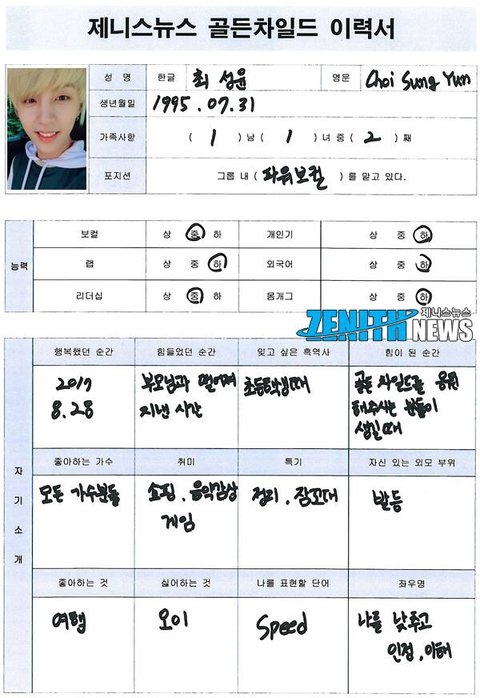 제니스뉴스 골든차일드 이력서
성 명 한글 최 성윤 영문 Choi Sung Yun
생년월일 1995.07.31
가족사항 ( 1 ) 남 ( 1 ) 녀 중 ( 2 ) 째
포지션 그룹 내 ( 파워보컬 ) 를 맡고 있다.
능력
보컬 상 중 하 개인기 상 중 하
랩 상 중 하 외국어 상 중 하
리더십 상 중 하 몸개그 상 중 하
제니스뉴스
ZENITH NEWS
자기소개
행복했던 순간 힘들었던 순간 잊고 싶은 흑역사 힘이 된 순간
2017
8.28
부모님과 떨어져
지낸 시간
초등학생때
골든 차일드를 응원
해주시는 분들이
생길때
좋아하는 가수 취미 특기 자신 있는 외모 부위
모든 가수분들
쇼핑, 음악감상
게임
정리, 잠꼬대
발등
좋아하는 것 싫어하는 것 나를 표현할 단어 좌우명
여행
오이
Speed
나를 낮추고
인정, 이해